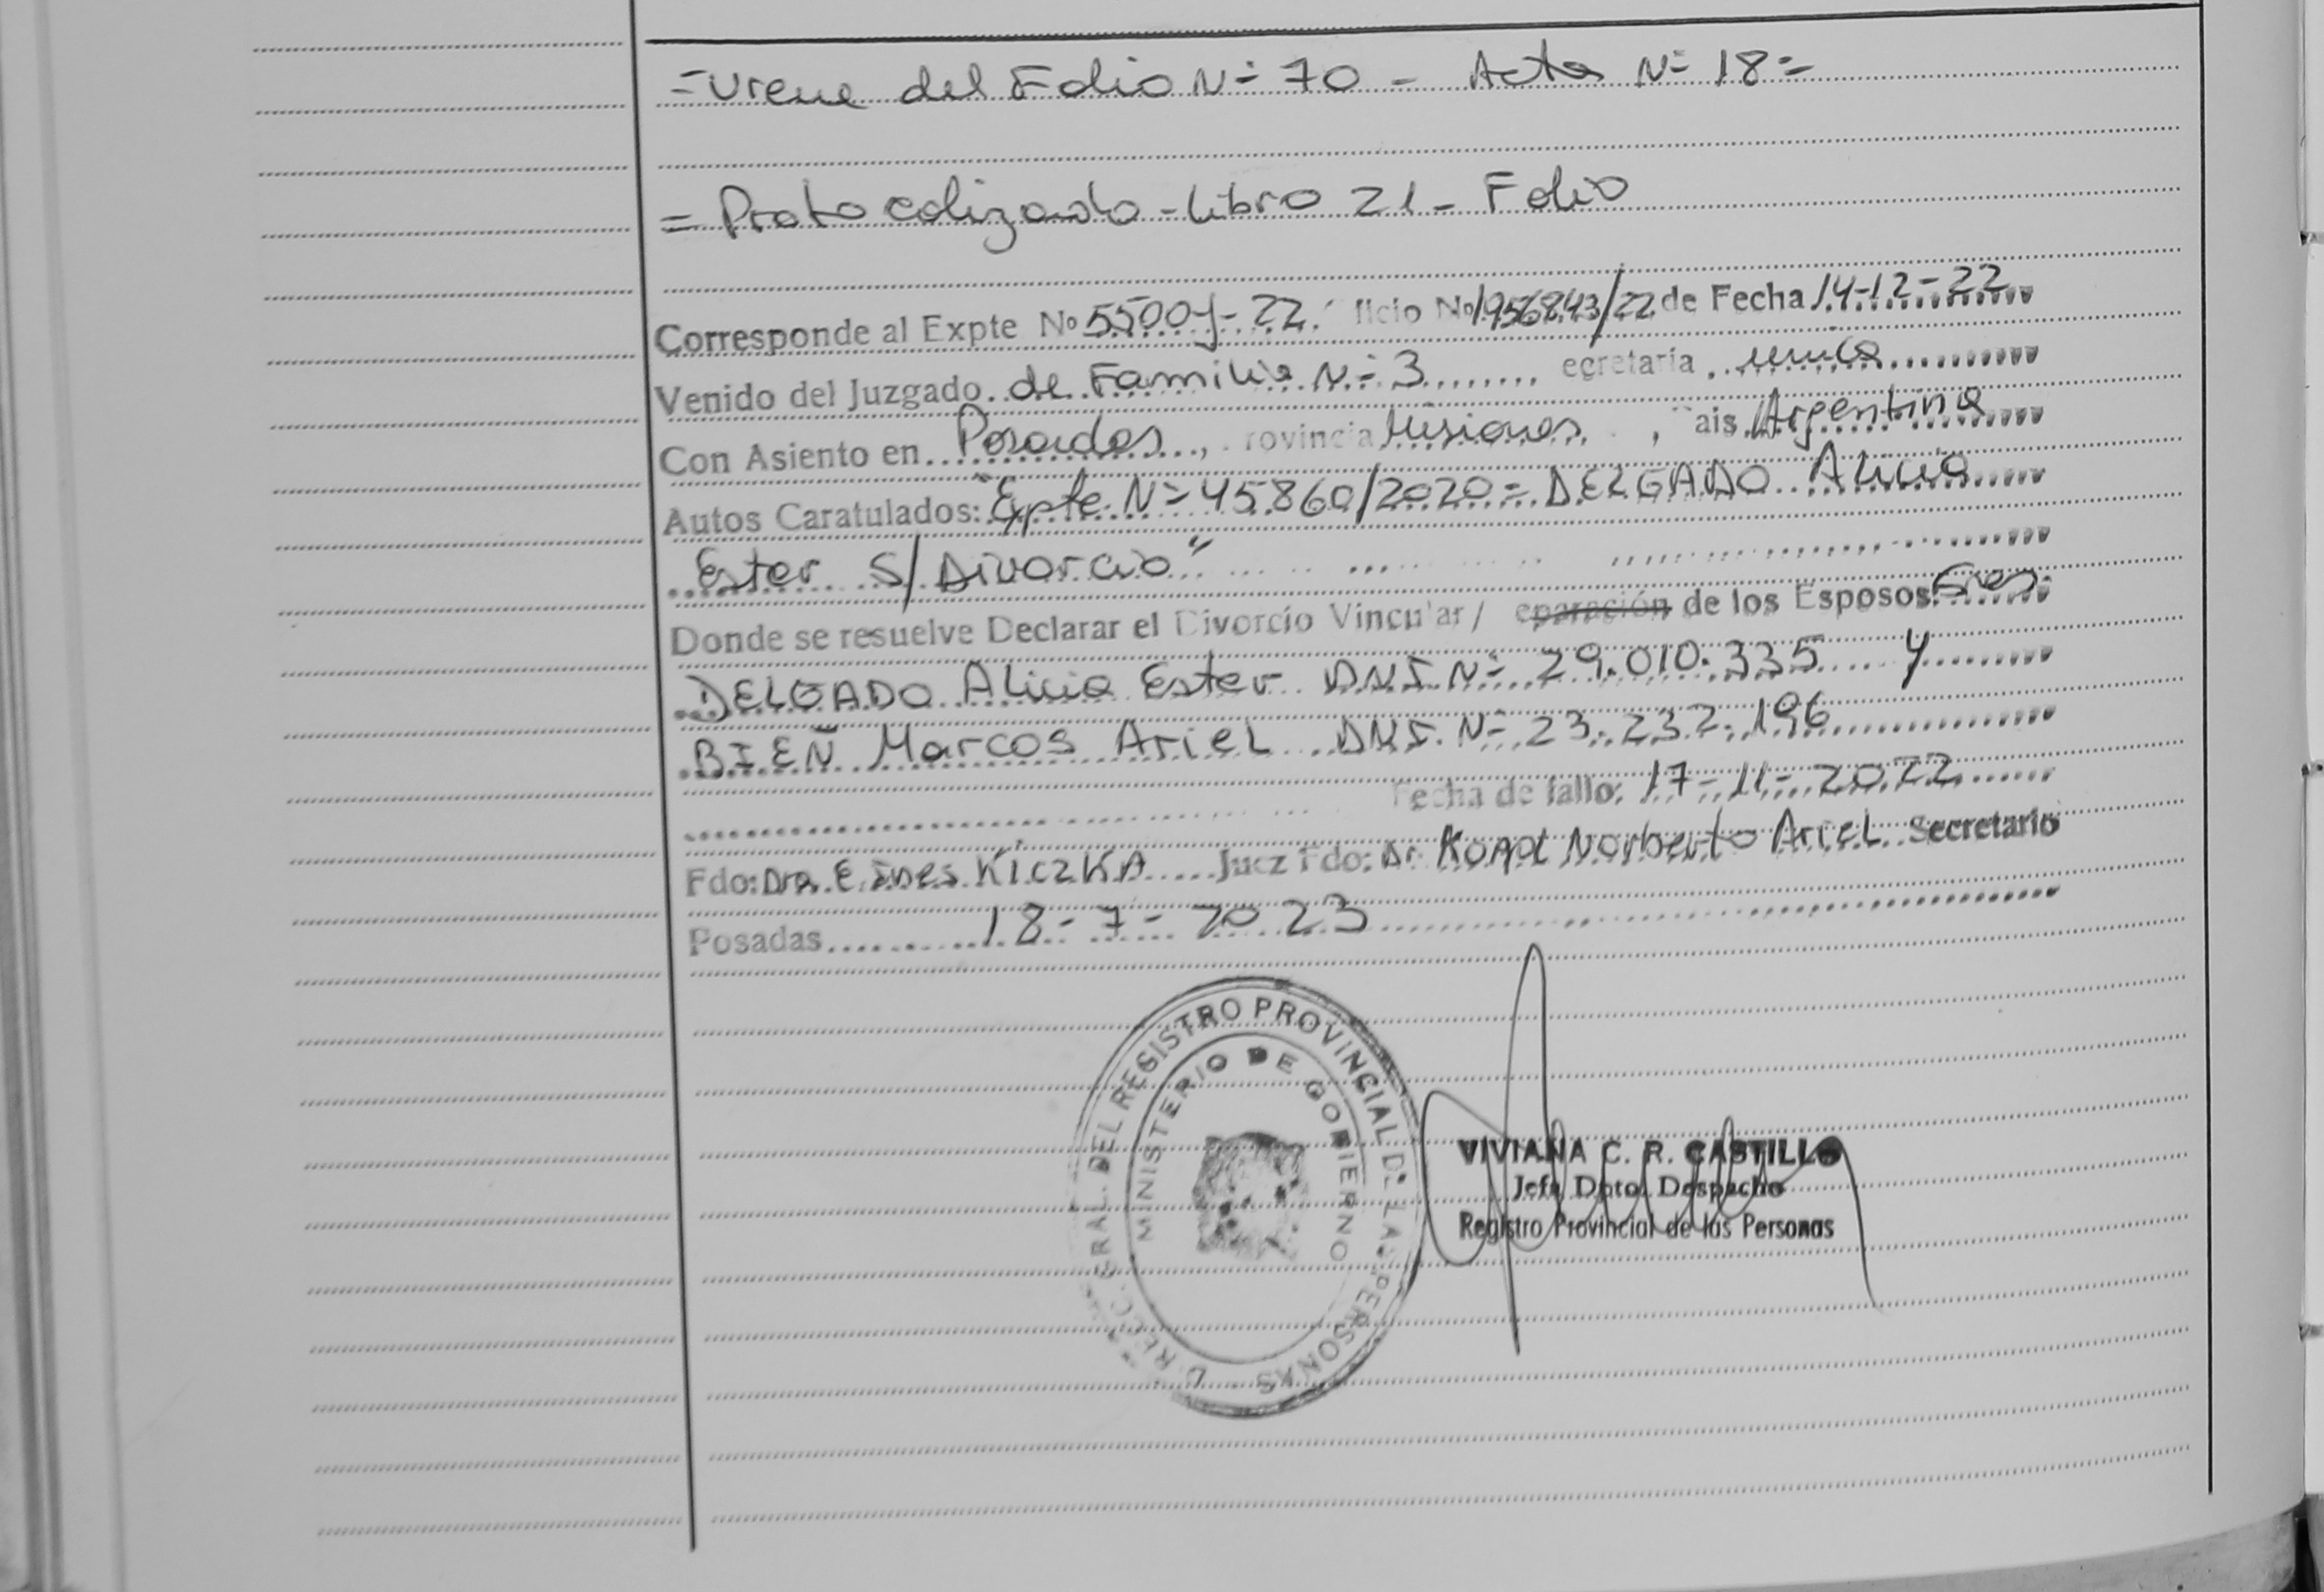 = Viene del Folio Nº 70 - Acta Nº 18 =
= Protocolizado - Libro 21 - Folio
Corresponde al Expte Nº 5500 - 22 ficio Nº 1956843/22 de Fecha 14-12-22
Venido del Juzgado de Familia Nº 3 ecretaría única
Con Asiento en Posadas, rovincia Misiones, ais Argentina
Autos Caratulados: "Expte Nº 45.860/2020 = DELGADO Alicia
Ester S/ Divorcio"
Donde se resuelve Declarar el Divorcío Vincular / eparación de los Esposos Sres.
DELGADO Alicia Ester DNI. Nº 29.010.335 y
BIEÑ Marcos Ariel DNI. Nº 23.232.196
Fecha de fallo: 17-11-2022
Fdo: Dra. E. Ines KiczKA Juez Fdo: Dr. Norberto Ariel Secretario
Posadas 18-7-2023
DIRECC. GRAL. DEL REGISTRO PROVINCIAL DE LAS PERSONAS
MINISTERIO DE GOBIERNO
VIVIANA C. R. CASTILLO
Jefa Dpto. Despacho
Registro Provincial de las Personas